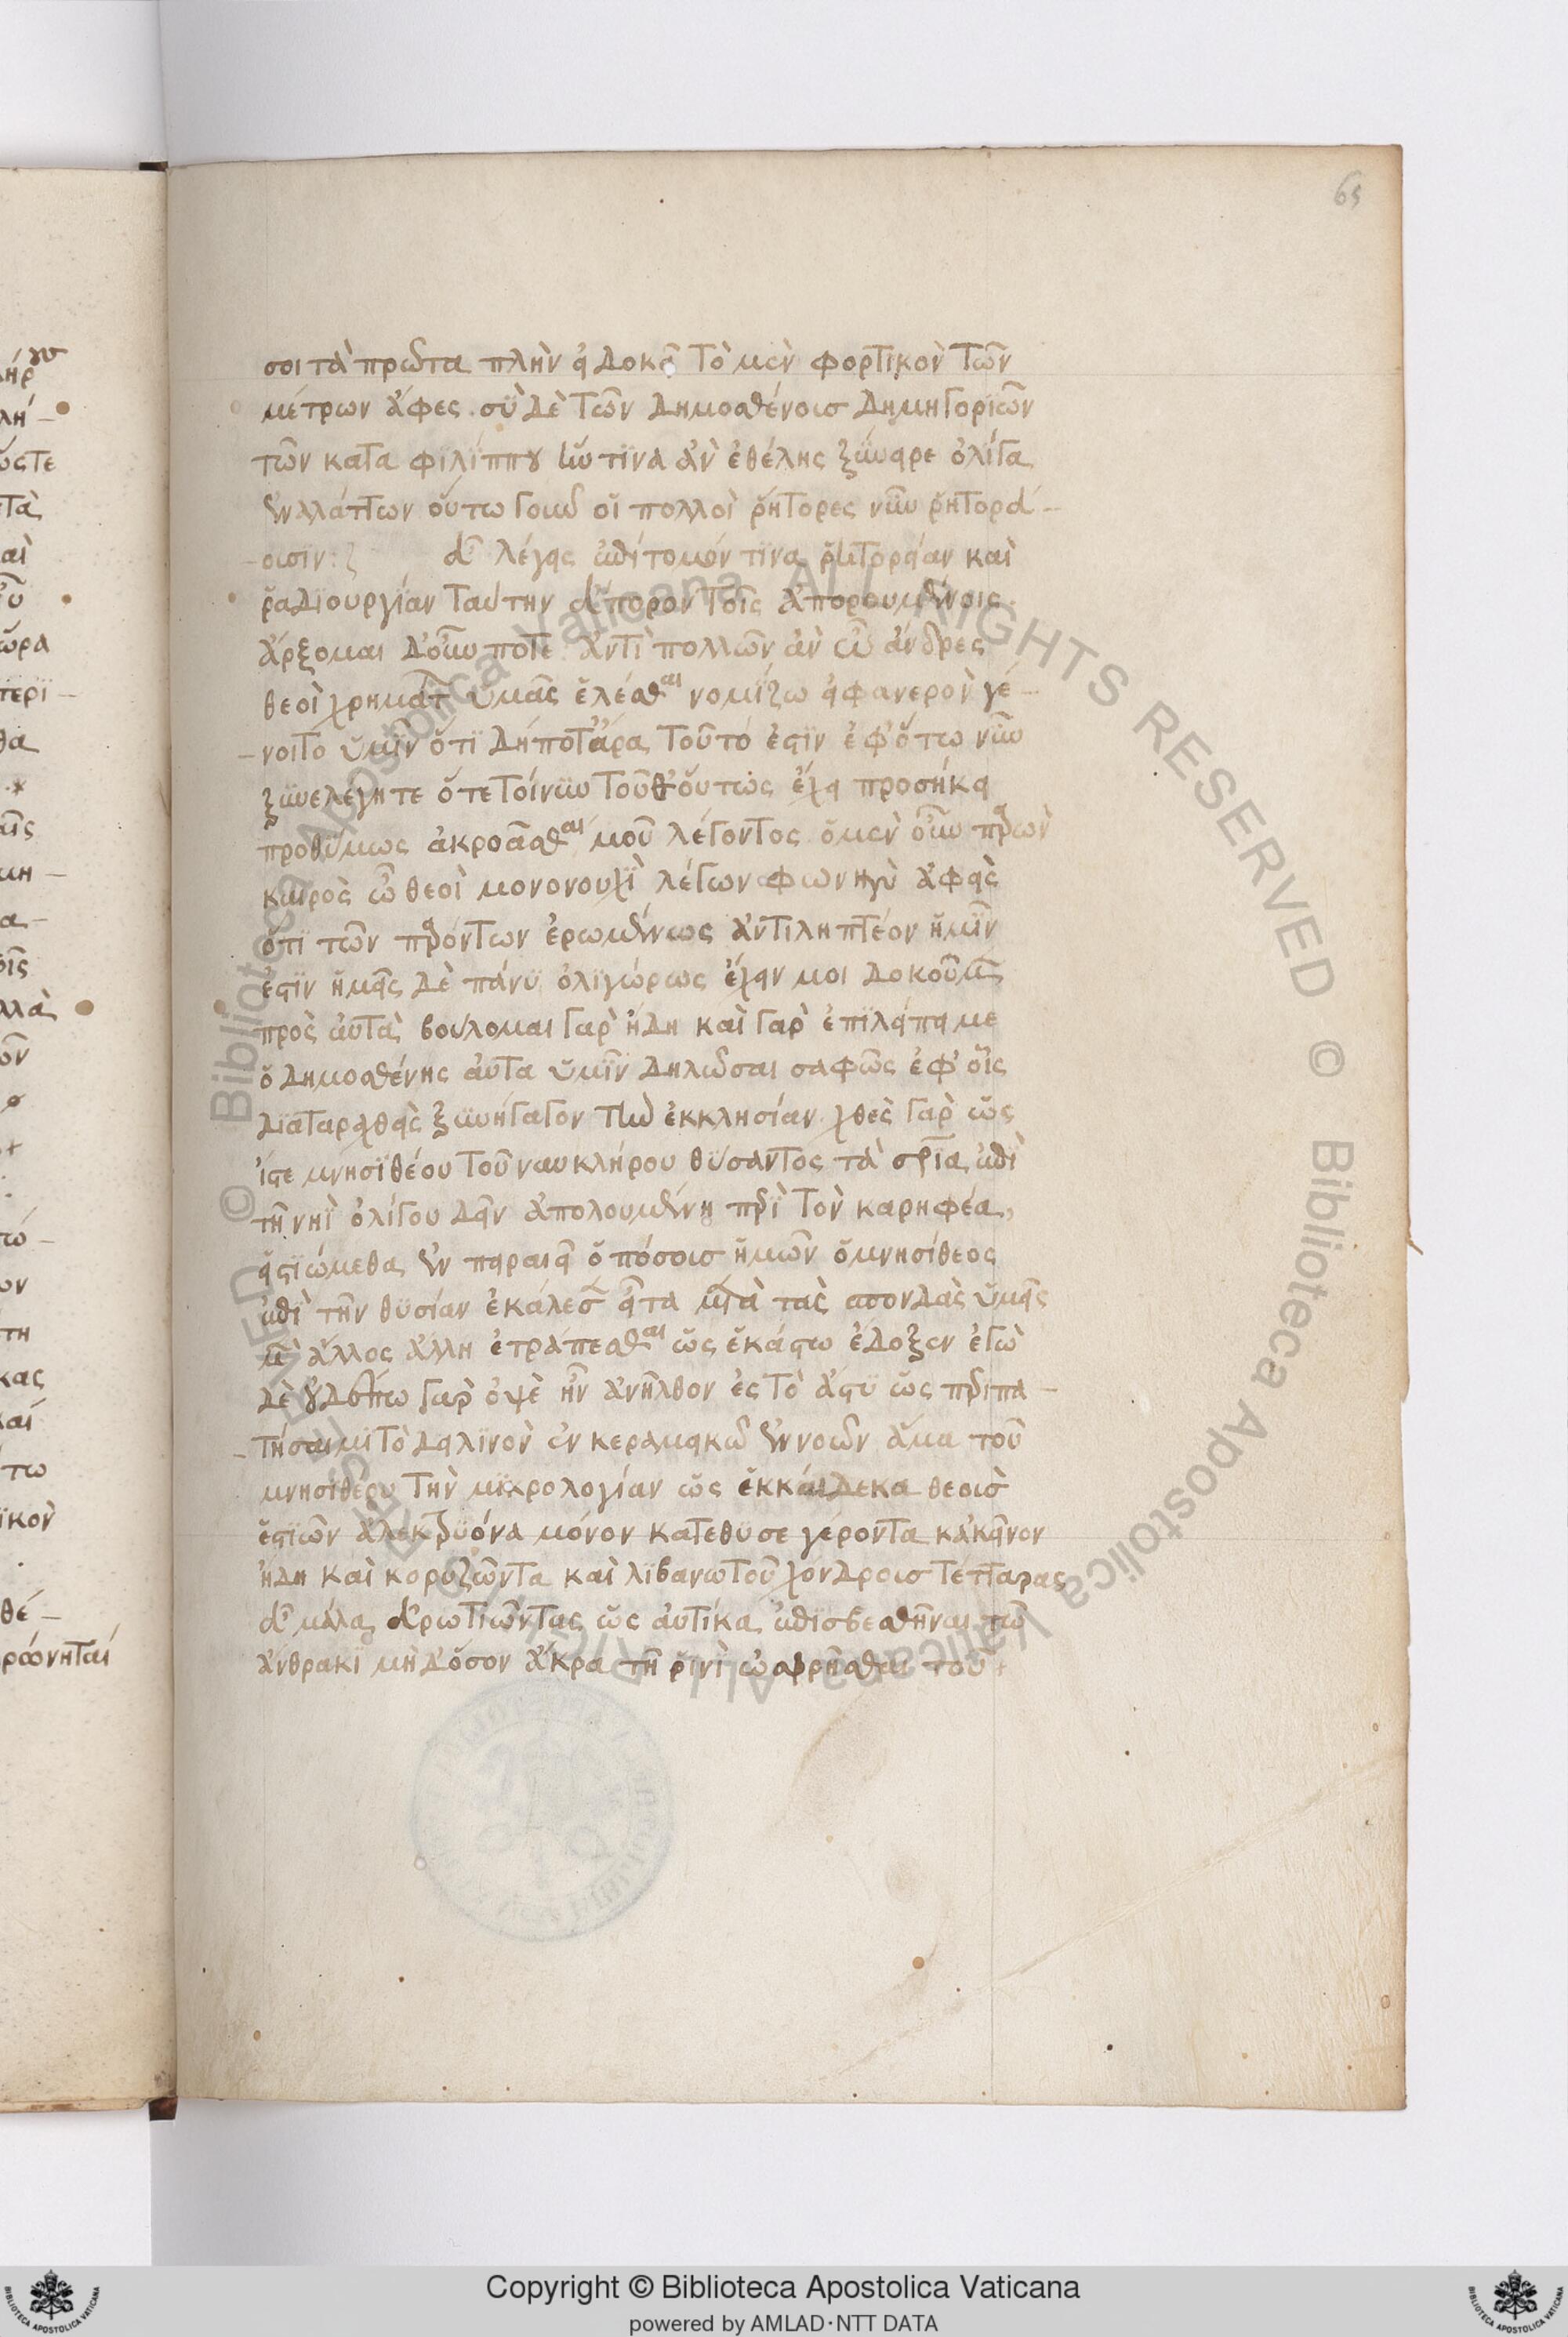 65
σοι τὰ πρῶτα πλὴν εἰ δοκεῖ τὸ μὲν φορτικὸν τῶν
μέτρων ἄφες. σὺ δὲ τῶν Δημοσθένους δημηγοριῶν
τῶν κατα φιλίππου ἥν τινα ἂν ἐθέλης ξύνειρε ὀλίγα
ἐναλάττων οὕτω γοῦν οἱ πολλοὶ ῥήτορες νῦν ῥητορεύ-
-ουσιν: εὖ λέγεις ἐπίτομόν τινα ῥητορείαν καὶ
ῥαδιουργίαν ταύτην εὔπορον τοῖς ἀπορουμένοις
ἄρξομαι δ' οὖν ποτε ἀντὶ πολλῶν ἂν ὦ ἄνδρες
θεοὶ χρημάτων ὑμᾶς ἑλέσθαι νομίζω εἰ φανερὸν γέ-
-νοιτο ὑμῖν ὅτι δήποτ' ἄρα τοῦτό ἐστιν ἐφ' ὅτω νῦν
ξυνελέγητε ὅτε τοίνυν τοῦθ' οὕτως ἔχει προσήκει
προθύμως ἀκροᾶσθαι μοῦ λέγοντος ὁ μὲν οὖν παρὼν
καιρὸς ὦ θεοὶ μονονουχὶ λέγων φωνὴν ἀφεὶς
ὅτι τῶν παρόντων ἐρωμένως ἀντιληπτέον ἡμῖν
ἐστιν ἡμεῖς δὲ πάνυ ὀλιγώρως ἔχειν μοι δοκοῦμεν
πρὸς αὐτὰ βούλομαι γαρ ἤδη καὶ γαρ ἐπιλείπει με
ὁ Δημοσθένης αὐτα ὑμῖν δηλῶσαι σαφῶς ἐφ' οἷς
διαταραχθεὶς ξυνήγαγον τὴν ἐκκλησίαν χθες γαρ ὡς
ἴστε μνησιθέου τοῦ ναυκλήρου θύσαντος τὰ σωτήρια ἐπὶ
τῇ νηὶ ὀλίγου δεῖν ἀπολουμένῃ περὶ τὸν καρηφέα,
εἱστιώμεθα ἐν πειραιεῖ ὁπόσους ἡμῶν ὁ μνησίθεος
ἐπὶ τὴν θυσίαν ἐκάλεσεν εἶτα μετὰ τας σπονδὰς ὑμεῖς
μὲν ἄλλος ἄλλη ἐτράπεσθαι ὡς ἑκάστω ἔδοξεν ἐγὼ
δὲ οὐδέπω γαρ ὀψὲ ἦν ἀνῆλθον ἐς τὸ ἄστυ ὡς περιπα-
-τήσαιμι τὸ δειλινὸν ἐν κεραμεικῶ ἐννοῶν ἅμα τοῦ
μνησιθέου τὴν μικρολογίαν ὡς ἑκκαίδεκα θεοὺς
ἑστιῶν ἀλεκτρυόνα μόνον κατέθυσε γέροντα κἀκεῖνον
ἤδη καὶ κορυζῶντα καὶ λιβανωτοῦ χόνδρους τέτταρας
εὖ μάλα εὐρωτιῶντας ὡς αὐτίκα ἐπισβεσθῆναι τῶ
ἄνθρακι μὴ δ' ὅσον ἄκρα τῇ ῥινὶ ὠσφρῆσθαι τοῦ
© Biblioteca Apostolica Vaticana ALL RIGHTS RESERVED © Biblioteca Apostolica Vaticana ALL RIGHTS RESERVED
Copyright © Biblioteca Apostolica Vaticana
powered by AMLAD·NTT DATA